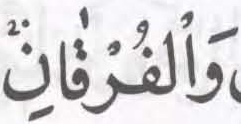 وَالْفُرْقَانِ ۚ